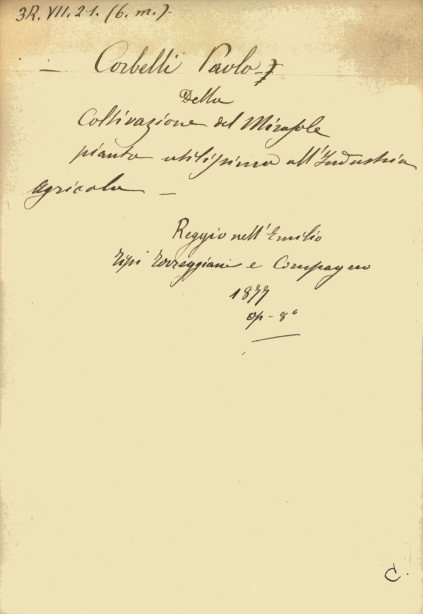 3R. VII. 21. (6. m.)-
— Corbelli Paolo -
Della
Coltivazione del Mirasole
pianta utilissima all'Industria
agricola —
Reggio nell'Emilia
Tipi Torreggiani e Compagno
1877
op - 8°
C.